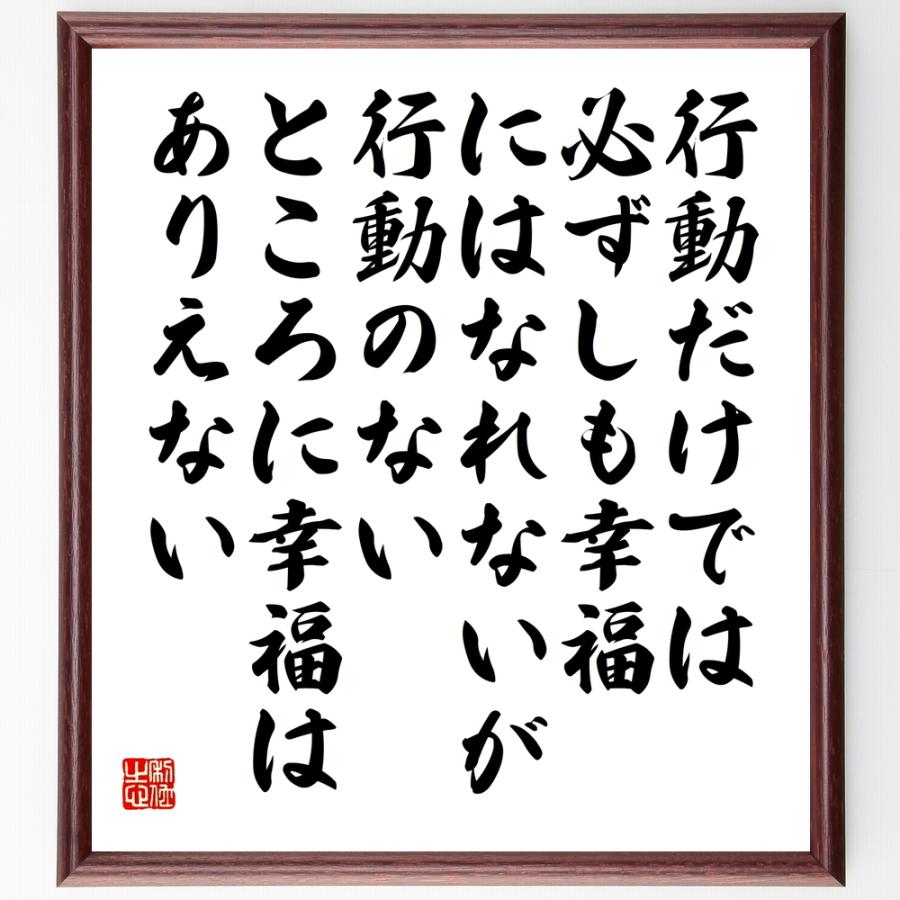 行動だけでは
必ずしも幸福
にはなれないが
行動のない
ところに幸福は
ありえない